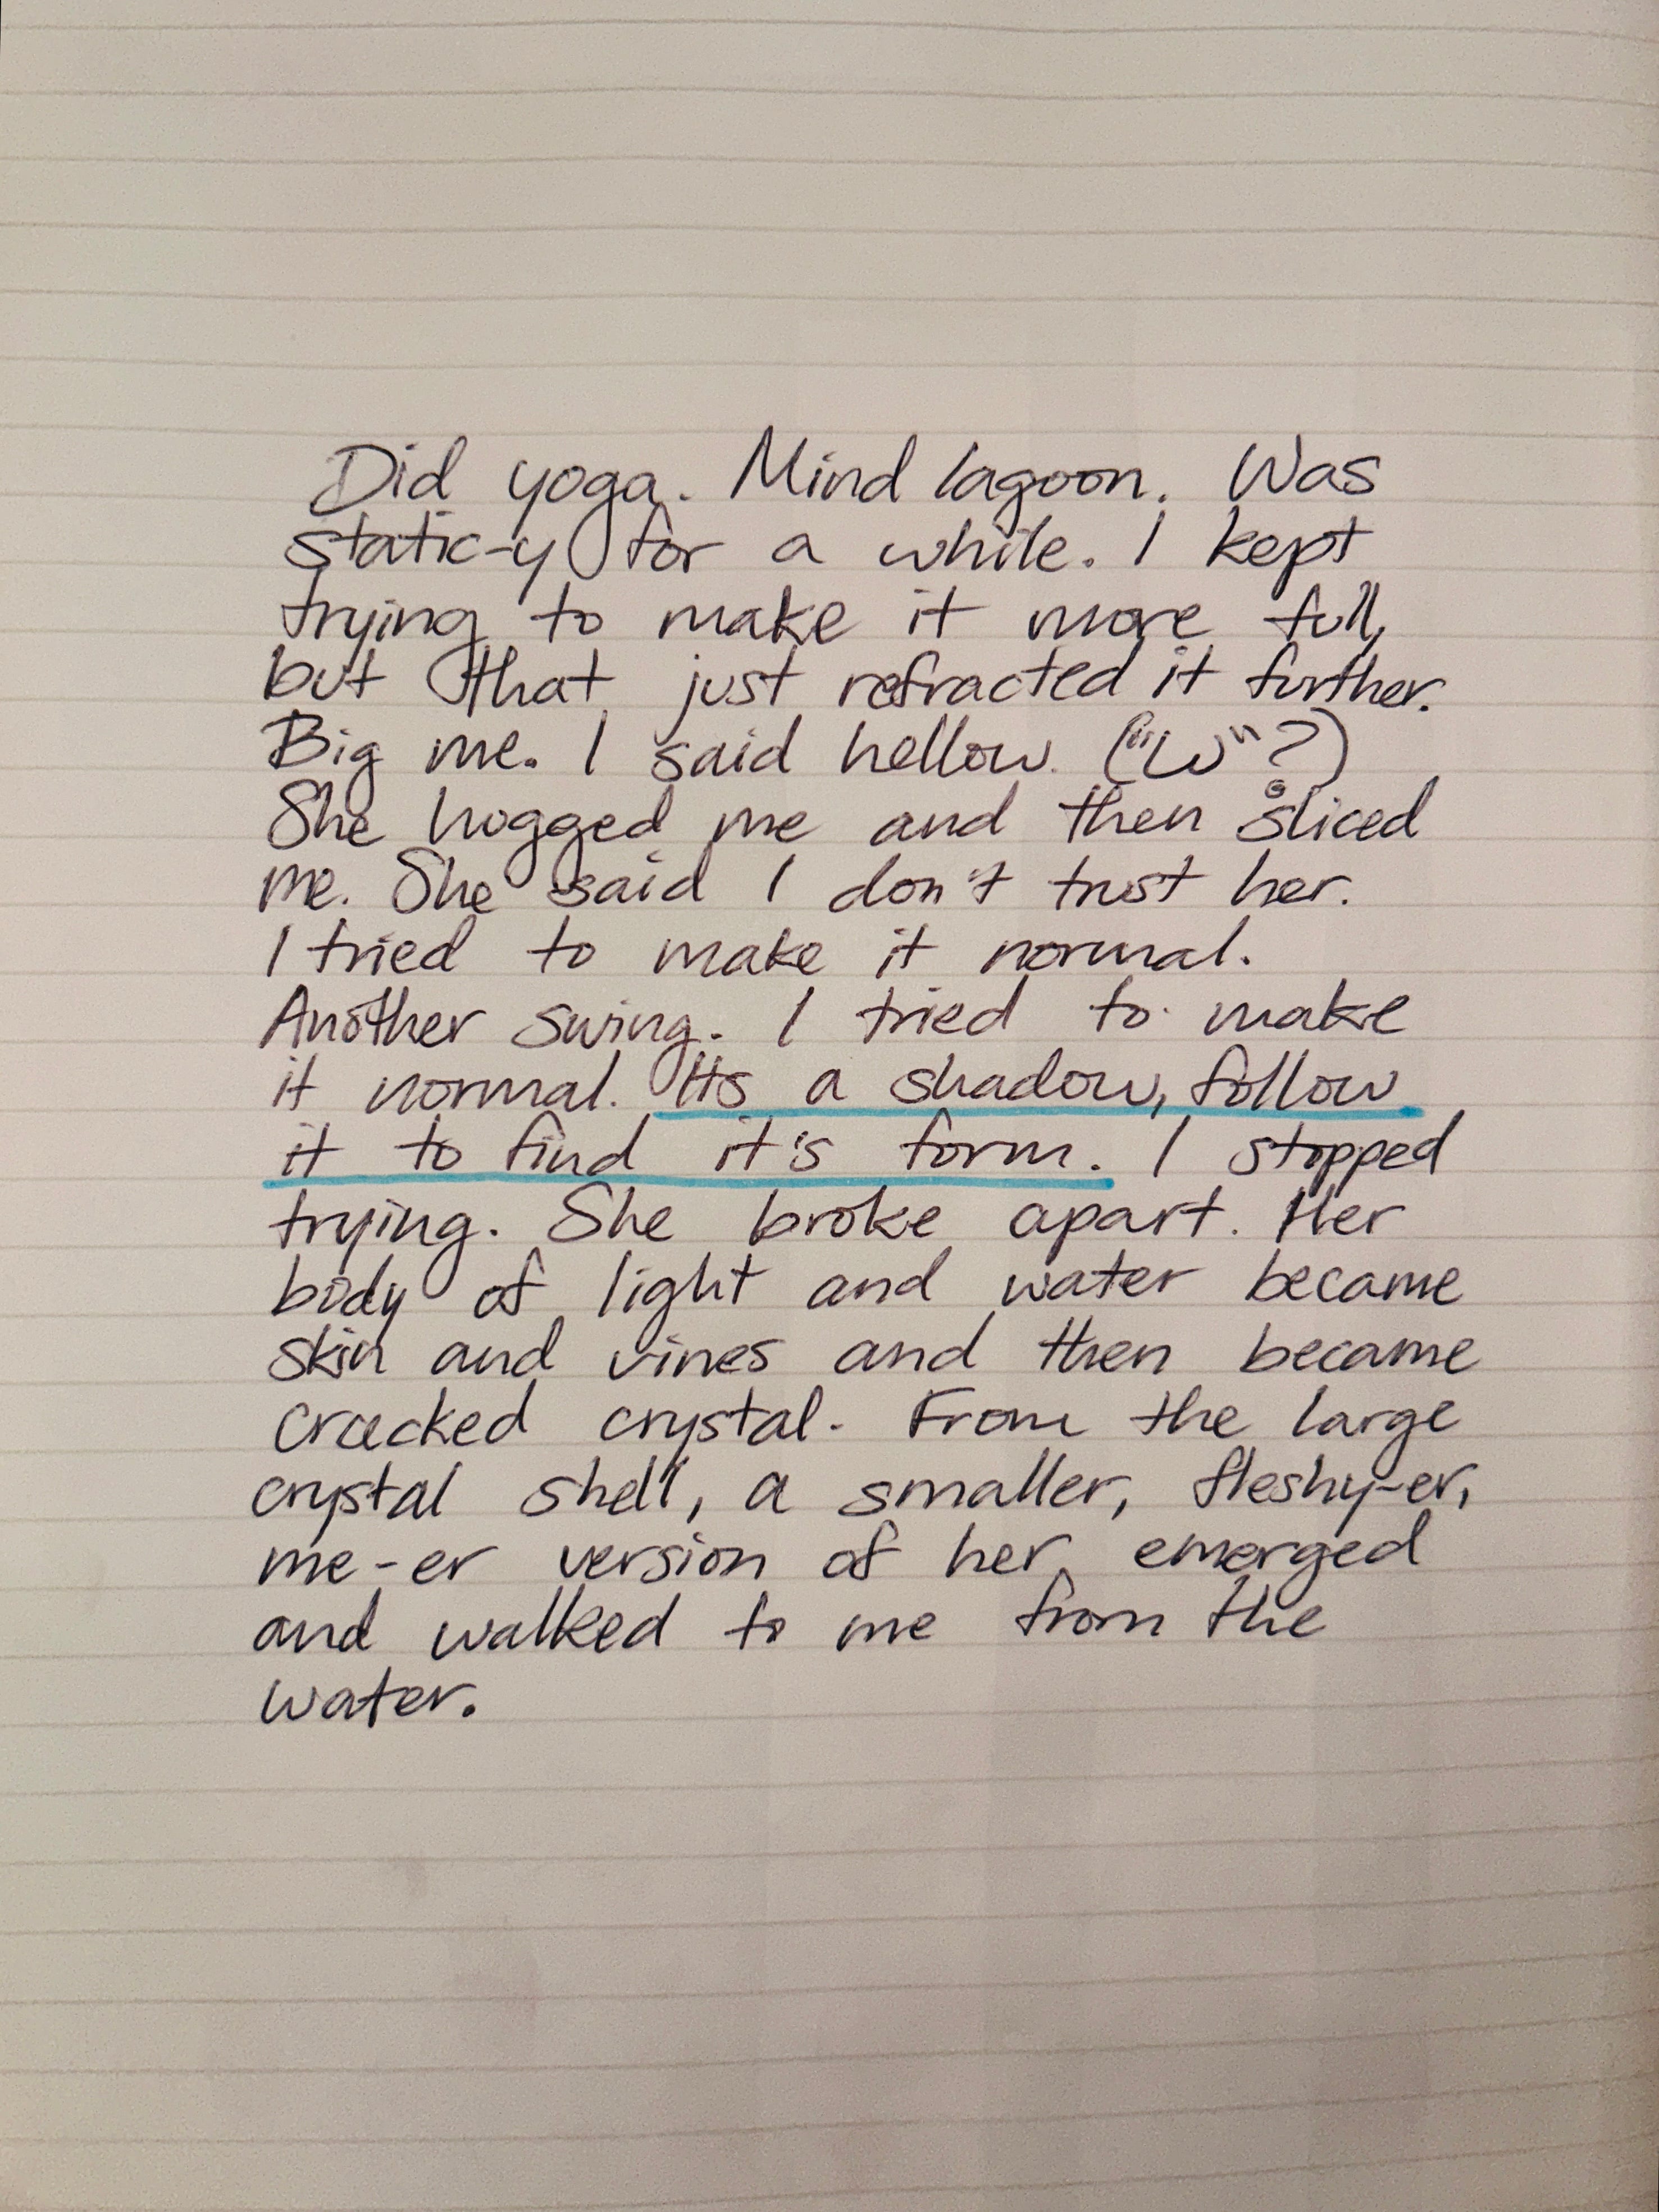 Did yoga. Mind lagoon. Was
static-y for a while. I kept
trying to make it more full,
but that just refracted it further.
Big me. I said hellow. ("W"?)
She hugged me and then sliced
me. She said I don't trust her.
I tried to make it normal.
Another swing. I tried to make
it normal. Its a shadow, follow
it to find it's form. I stopped
trying. She broke apart. Her
body of light and water became
skin and vines and then became
cracked crystal. From the large
crystal shell, a smaller, fleshy-er,
me-er version of her emerged
and walked to me from the
water.